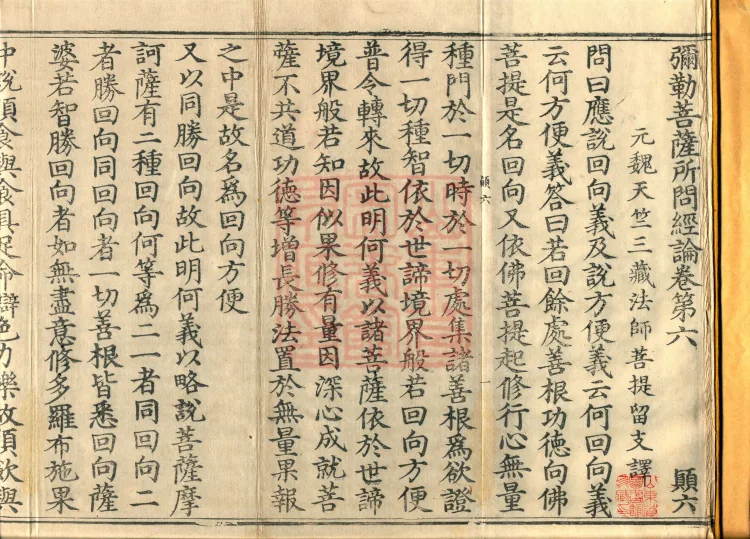 彌勒菩薩所問經論卷第六 顚六
元魏天竺三藏法師菩提留支譯
問曰應說回向義及說方便義云何回向義
云何方便義答曰若回餘處善根功德向佛
菩提是名回向又依佛菩提起修行心無量
顚六 一
種門於一切時於一切處集諸善根爲欲證
得一切種智依於世諦境界般若回向方便
普令轉來故此明何義以諸菩薩依於世諦
境界般若知因似果修有量因深心成就菩
薩不共道功德等增長勝法置於無量果報
之中是故名爲回向方便
又以同勝回向故此明何義以略說菩薩摩
訶薩有二種回向何等爲二一者同回向二
者勝回向同回向者一切善根皆悉回向薩
婆若智勝回向者如無盡意修多羅布施果
中說須食與食具足命辯色力樂故須飲與